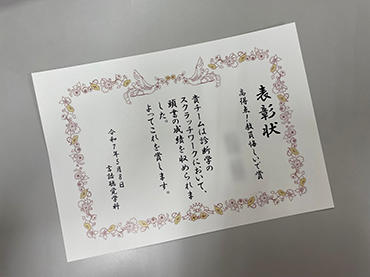 表彰状
高得点！教員悔しいで賞
貴チームは診断学の
スクラッチワークにおいて、
頭書の成績を収められま
した。
よってこれを賞します。
令和7年5月8日
言語聴覚学科